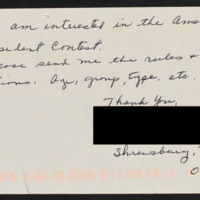 am interested in the Ame
sident Contest.
ase send me the rules +
ions. Age, group, type, etc.
Thank You,
Shrewsbury,
0